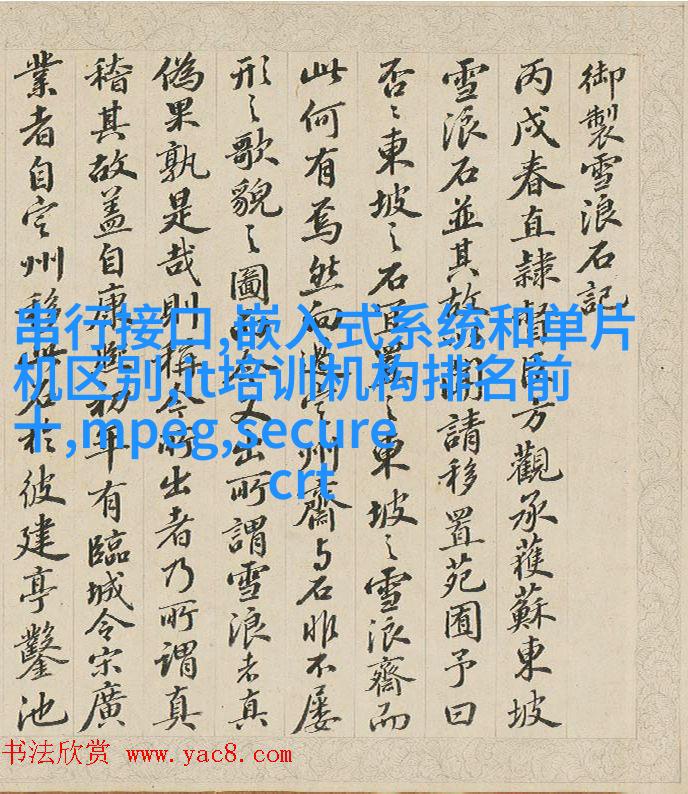 御製雪浪石記
丙戌春直隸督臣方觀承獲蘇東坡
雪浪石並其故聞請移置苑囿予曰
否〻東坡之石置之東坡之雪浪齋而
此何有焉然向過定州齋与石非不屡
形之歌貌之圖而今又出所謂雪浪者真
偽果孰是哉則稱今所出者乃所謂真
稽其故盖自康熙初年有臨城令宋廣
業者自定州移此石於彼建亭鑿池
串行接口,嵌入式系统和单片
机区别,it培训机构排名前
十,mpeg,secure
crt
书法欣赏 www.yac8.com